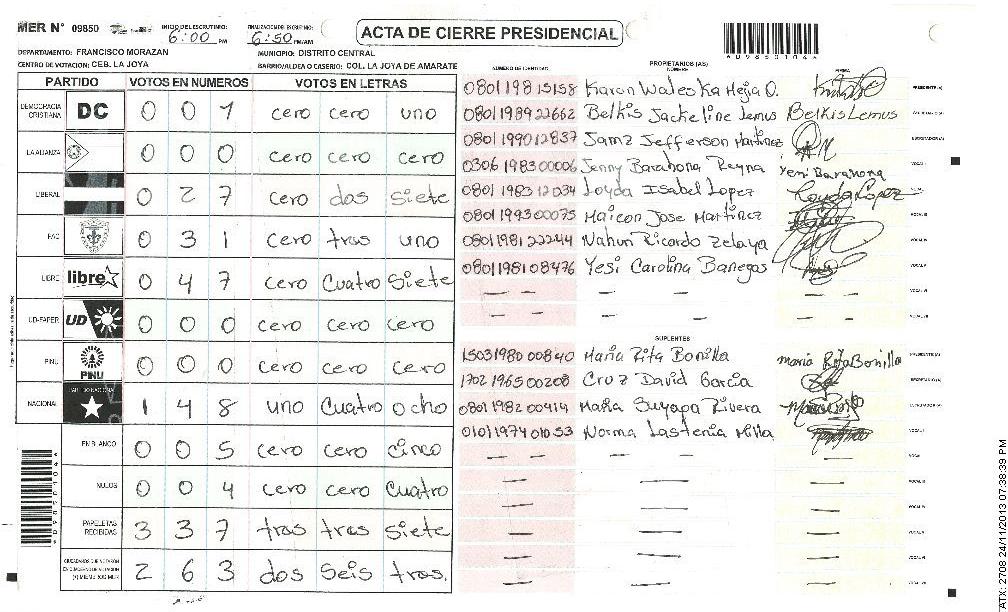 MER N° 09850 INICIO DEL ESCRUTINIO: 6:00 PM FINALIZACION DEL ESCRUTINIO: 6:50 PM/AM
ACTA DE CIERRE PRESIDENCIAL
DEPARTAMENTO: FRANCISCO MORAZAN MUNICIPIO: DISTRITO CENTRAL
CENTRO DE VOTACION: CEB. LA JOYA BARRIO/ALDEA O CASERIO: COL. LA JOYA DE AMARATE
PARTIDO VOTOS EN NÚMEROS VOTOS EN LETRAS
DEMOCRACIA CRISTIANA DC 0 0 1 cero cero uno
LA ALIANZA 0 0 0 cero cero cero
LIBERAL 0 2 7 cero dos siete
PAC 0 3 1 cero tras uno
LIBRE libre 0 4 7 cero Cuatro Siete
UD-FAPER UD 0 0 0 cero cero cero
PINU PINU 0 0 0 cero cero cero
NACIONAL PARTIDO NACIONAL 1 4 8 uno Cuatro ocho
EN BLANCO 0 0 5 cero cero cinco
NULOS 0 0 4 cero cero Cuatro
PAPELETAS RECIBIDAS 3 3 7 tras tras Siete
CIUDADANOS QUE VOTARON 2 6 3 dos Seis tras.
PROPIETARIOS (AS)
NÚMERO DE IDENTIDAD NOMBRE FIRMA
0801198 15158 Karon Waleska Mejia O. PRESIDENTE(A)
0801 1989 22662 Belkis Jackeline Lemus Belkis Lemus SECRETARIO(A)
0801 1990 12837 Samz Jefferson Martinez ESCRUTADOR(A)
0306 1983 00006 Jenny Barahona Reyna Yeni Barahona VOCAL I
0801 1983 12034 Loyda Isabel Lopez Loyda Lopez VOCAL II
0801 1993 00075 Maicon Jose Martinez VOCAL III
0801 1981 22244 Nahun Ricardo Zelaya VOCAL IV
0801 1981 08476 Yesi Carolina Banegas VOCAL V
— — — — — VOCAL VI
— — — — — VOCAL VII
SUPLENTES
1503 1980 00840 Maria Rita Bonilla maria Rita Bonilla PRESIDENTE(A)
1702 1965 00208 Cruz David Garcia SECRETARIO(A)
0801 1982 00414 Maria Suyapa Rivera ESCRUTADOR(A)
0101 1974 01053 Norma Lastenia Milla VOCAL I
ATX: 2708 24/11/2013 07:38:39 PM